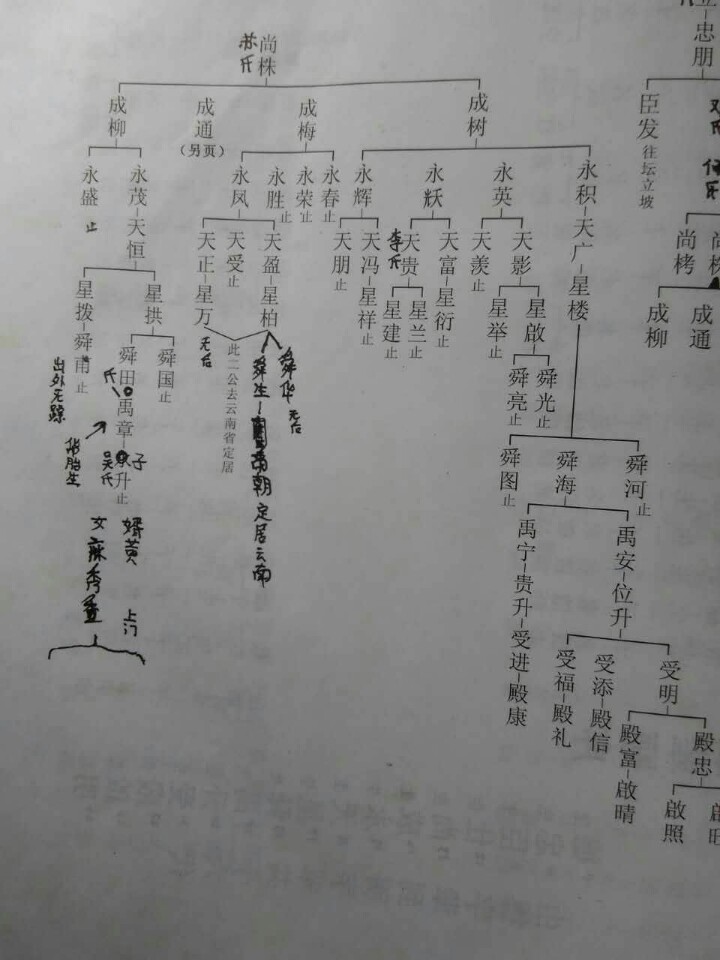 忠朋
尚株
苏氏
成柳
成通
(另页)
成梅
成树
臣发
往坛立坡
永盛
止
永茂
天恒
永凤
永胜
止
永荣
止
永春
止
永辉
永妖
永英
永积
天广
星楼
天正
星万
天受
止
天盈
星柏
天朋
止
天冯
星祥
止
李氏
天贵
天富
星衍
止
天羡
止
天影
星拨
舜甫
止
星拱
星建
止
星兰
止
星举
止
星啟
尚栲
成柳
成通
舜田
禹章
升
止
舜国
止
无后
此二公去云南省定居
舜生
朝定居云南
舜华
无后
舜亮
止
舜光
止
出外无踪
氏
吴氏
子
女
婿黄
上门
舜图
止
舜海
舜河
止
禹宁
贵升
受进
殿康
禹安
位升
受福
殿礼
受添
殿信
受明
殿富
啟晴
殿忠
啟照